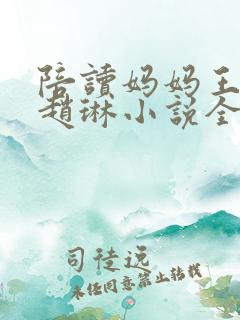 陪讀妈妈王
趙琳小说全
司徒远
未经同意禁止转载